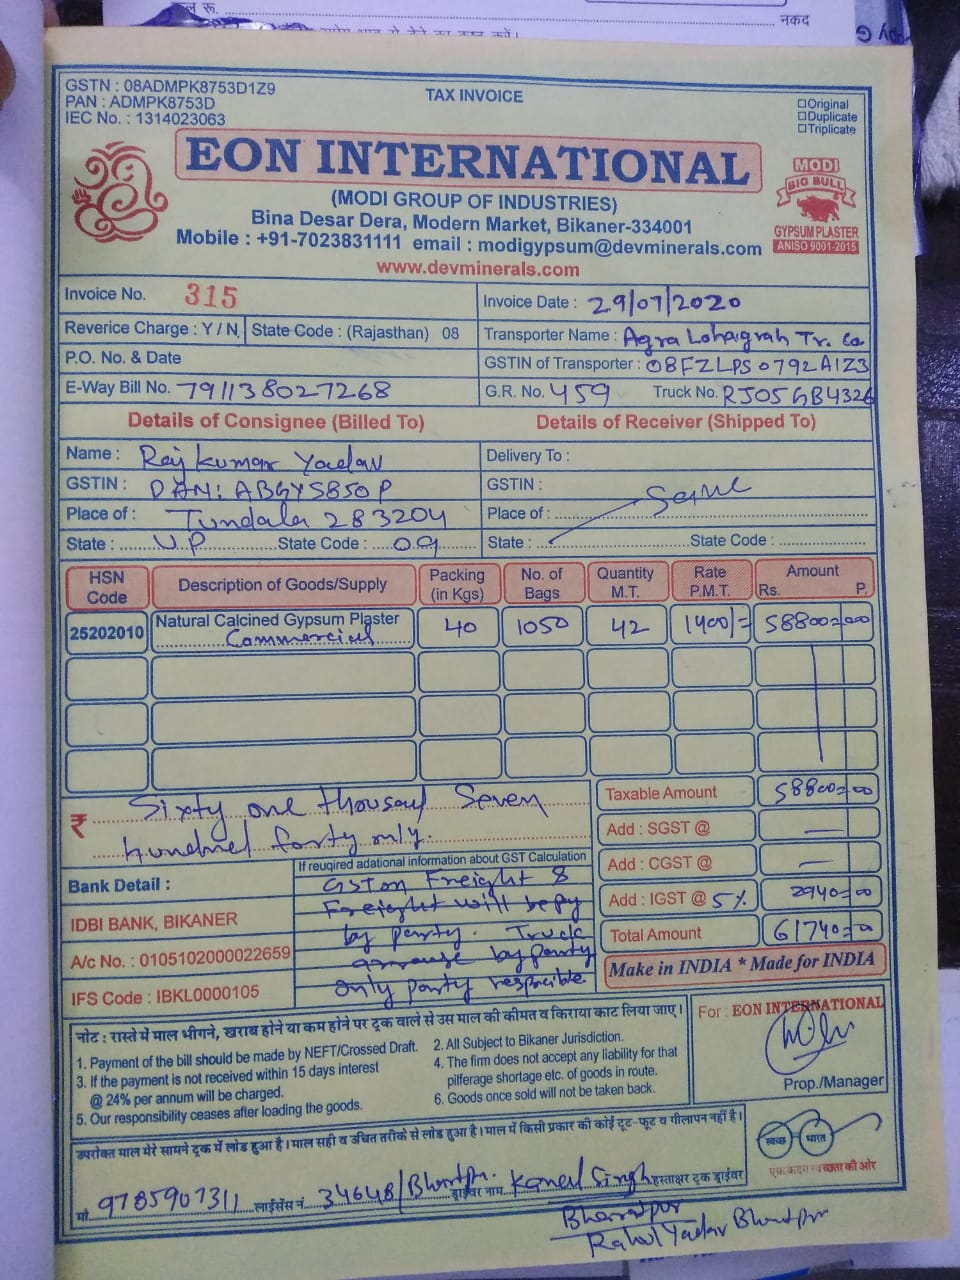 नकद
GSTN : 08ADMPK8753D1Z9
PAN : ADMPK8753D
IEC No. : 1314023063
TAX INVOICE
Original
Duplicate
Triplicate
EON INTERNATIONAL
(MODI GROUP OF INDUSTRIES)
Bina Desar Dera, Modern Market, Bikaner-334001
Mobile : +91-7023831111 email : modigypsum@devminerals.com
www.devminerals.com
MODI
BIG BULL
GYPSUM PLASTER
ANISO 9001-2015
Invoice No. 315
Invoice Date : 29/07/2020
Reverice Charge : Y / N, State Code : (Rajasthan) 08
Transporter Name : Agra Lohagrah Tr. Co.
P.O. No. & Date
GSTIN of Transporter : 08FZLPS0792A1Z3
E-Way Bill No. 791138027268
G.R. No. 459 Truck No. RJ05GB4326
Details of Consignee (Billed To)
Details of Receiver (Shipped To)
Name : Raj Kumar Yadav
Delivery To :
GSTIN : PAN: ABGYS850P
GSTIN :
Place of : Tundala 283204
Place of : Same
State : UP State Code : 09
State : State Code :
HSN Code Description of Goods/Supply Packing (in Kgs) No. of Bags Quantity M.T. Rate P.M.T. Amount Rs. P.
25202010 Natural Calcined Gypsum Plaster Commercial 40 1050 42 1400/= 58800=00
₹ Sixty one thousand Seven
hundred forty only.
Taxable Amount 58800=00
Add : SGST @ —
Add : CGST @ —
Add : IGST @ 5% 2940=00
Total Amount 61740=00
Make in INDIA * Made for INDIA
Bank Detail :
IDBI BANK, BIKANER
A/c No. : 0105102000022659
IFS Code : IBKL0000105
If reuqired adational information about GST Calculation
GST on Freight &
Freight will be pay
by party. Truck
arrange by party
only party respocible.
नोट : रास्ते में माल भीगने, खराब होने या कम होने पर ट्रक वाले से उस माल की कीमत व किराया काट लिया जाए।
1. Payment of the bill should be made by NEFT/Crossed Draft.
2. All Subject to Bikaner Jurisdiction.
3. If the payment is not received within 15 days interest
@ 24% per annum will be charged.
4. The firm does not accept any liability for that
pilferage shortage etc. of goods in route.
5. Our responsibility ceases after loading the goods.
6. Goods once sold will not be taken back.
For : EON INTERNATIONAL
Prop./Manager
उपरोक्त माल मेरे सामने ट्रक में लोड हुआ है। माल सही व उचित तरीके से लोड हुआ है। माल में किसी प्रकार की कोई टूट-फूट व गीलापन नहीं है।
स्वच्छ भारत
एक कदम स्वच्छता की ओर
मो. 9785907311 लाईसेंस नं. 34648/Bhartpr. ड्राईवर नाम Kamal Singh हस्ताक्षर ट्रक ड्राईवर
Bharatpur
Rahul Yadav Bhartpr